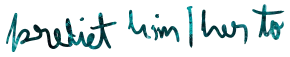 predict him / her to